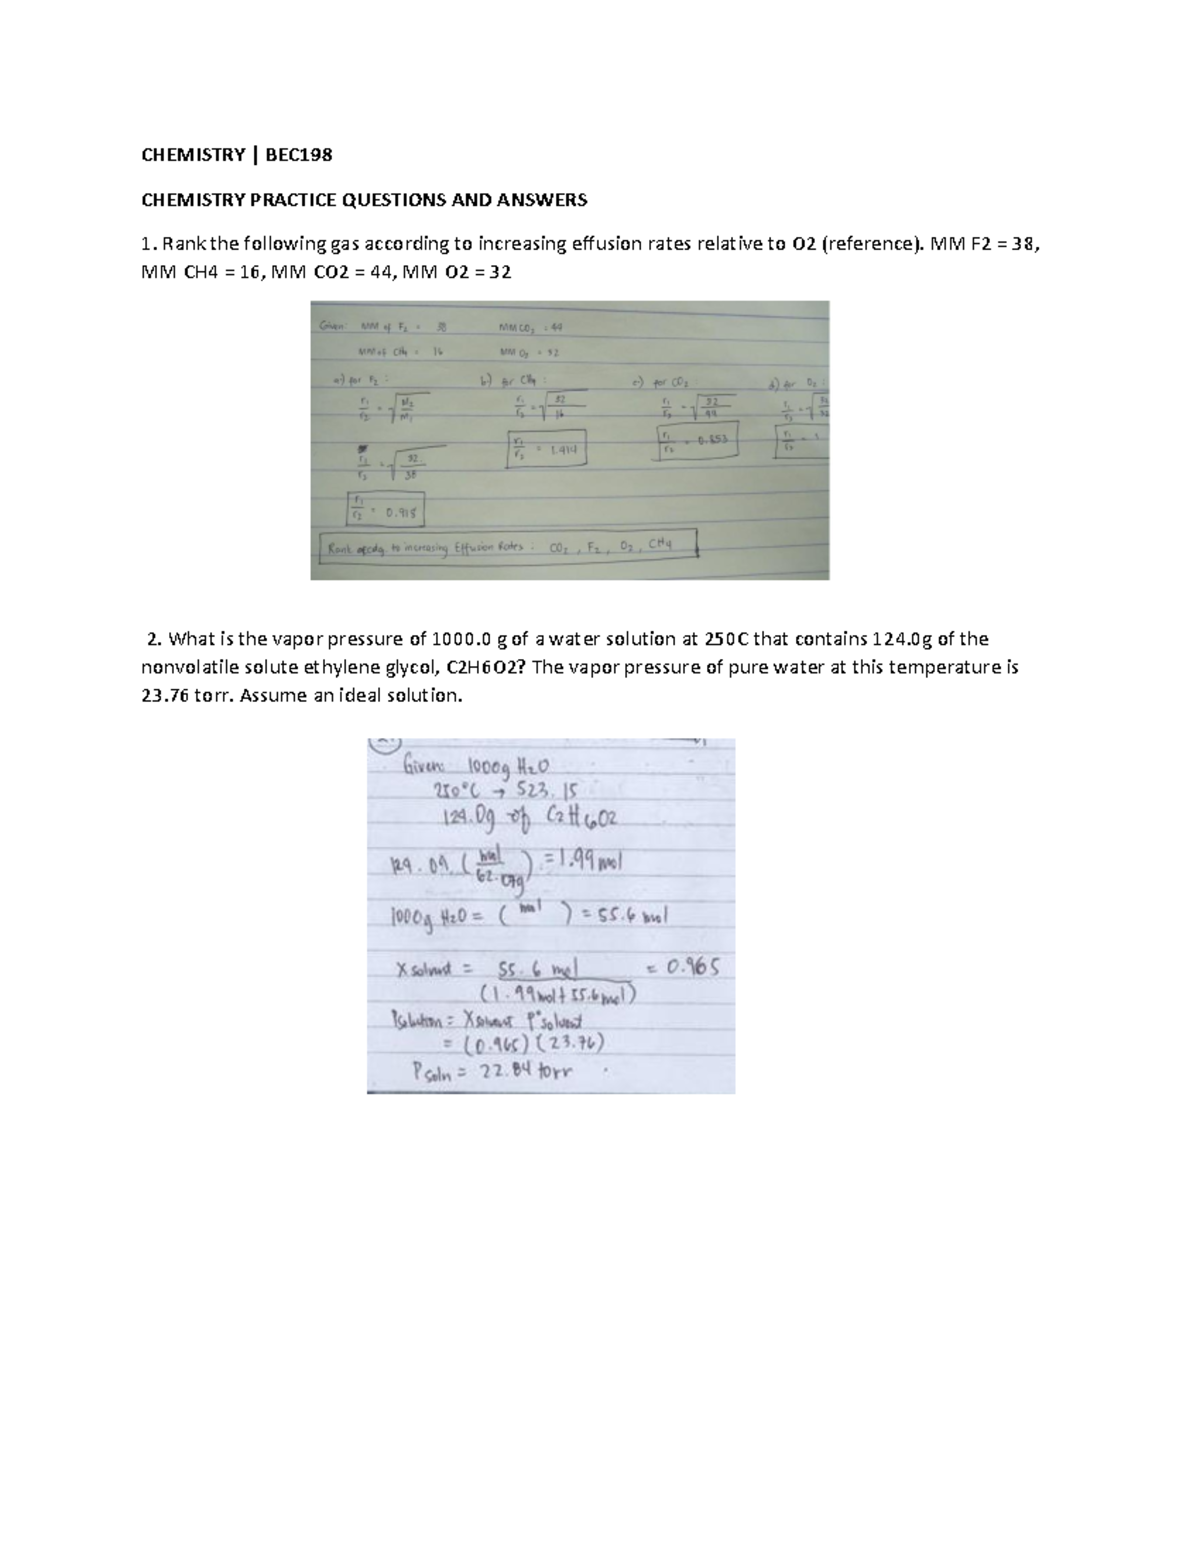 CHEMISTRY | BEC198
CHEMISTRY PRACTICE QUESTIONS AND ANSWERS
1. Rank the following gas according to increasing effusion rates relative to O2 (reference). MM F2 = 38,
MM CH4 = 16, MM CO2 = 44, MM O2 = 32
Given: MM of F₂ = 38 MM CO₂ = 44
MM of CH₄ = 16 MM O₂ = 32
a) for F₂ : b) for CH₄ : c) for CO₂ d) for O₂ :
r₁/r₂ = √M₂/M₁ r₁/r₂ = √32/16 r₁/r₂ = √32/44 r₁/r₂ = √
r₁/r₂ = 1.414 r₁/r₂ = 0.853 r₁/r₂ =
r₁/r₂ = √32/38
r₁/r₂ = 0.918
Rank to increasing Effusion Rates : CO₂ , F₂ , O₂ , CH₄
2. What is the vapor pressure of 1000.0 g of a water solution at 250C that contains 124.0g of the
nonvolatile solute ethylene glycol, C2H6O2? The vapor pressure of pure water at this temperature is
23.76 torr. Assume an ideal solution.
Given: 1000g H₂O
250°C → 523.15
124.0g of C2H6O2
124.0g (mol/62.07g) = 1.99 mol
1000g H₂O = ( mol ) = 55.6 mol
X solvent = 55.6 mol / (1.99 mol + 55.6 mol) = 0.965
Psolution = X solvent P°solvent
= (0.965)(23.76)
P soln = 22.84 torr